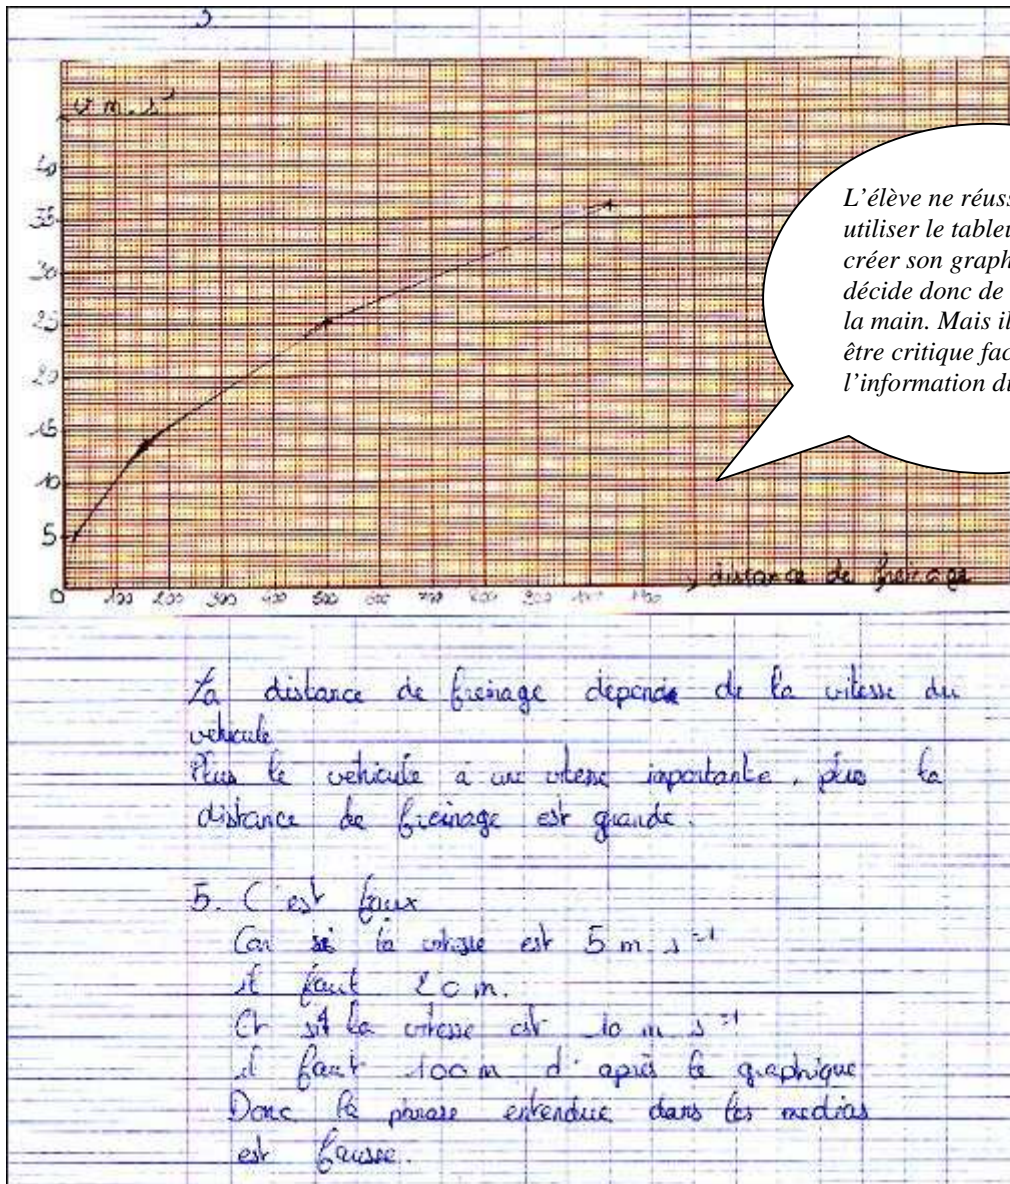 v m.s⁻¹
40
35
30
25
20
15
10
5
0
100 200 300 400 500 600 700 800 900
distance de freinage
L'élève ne réuss
utiliser le tableu
créer son graph
décide donc de
la main. Mais il
être critique fac
l'information du
La distance de freinage depend de la vitesse du
vehicule
Plus le vehicule a une vitesse importante, plus la
distance de freinage est grande.
5. C'est faux
Car si la vitesse est 5 m.s⁻¹
il faut 20 m.
Et si la vitesse est 10 m s⁻¹
il faut 100 m d'après le graphique
Donc la phrase entendue dans les medias
est fausse.